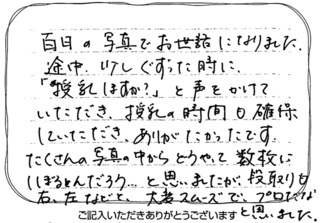 百日の写真でお世話になりました。
途中、少しぐずった時に、
「授乳しますか?」と声をかけて
いただき、授乳の時間も確保
していただき、ありがたかったです。
たくさんの写真の中からどうやって数枚に
しぼるんだろう…と思いましたが、段取りも
右、左などと、大変スムーズで、プロだな
と思いました。
ご記入いただきありがとうございます